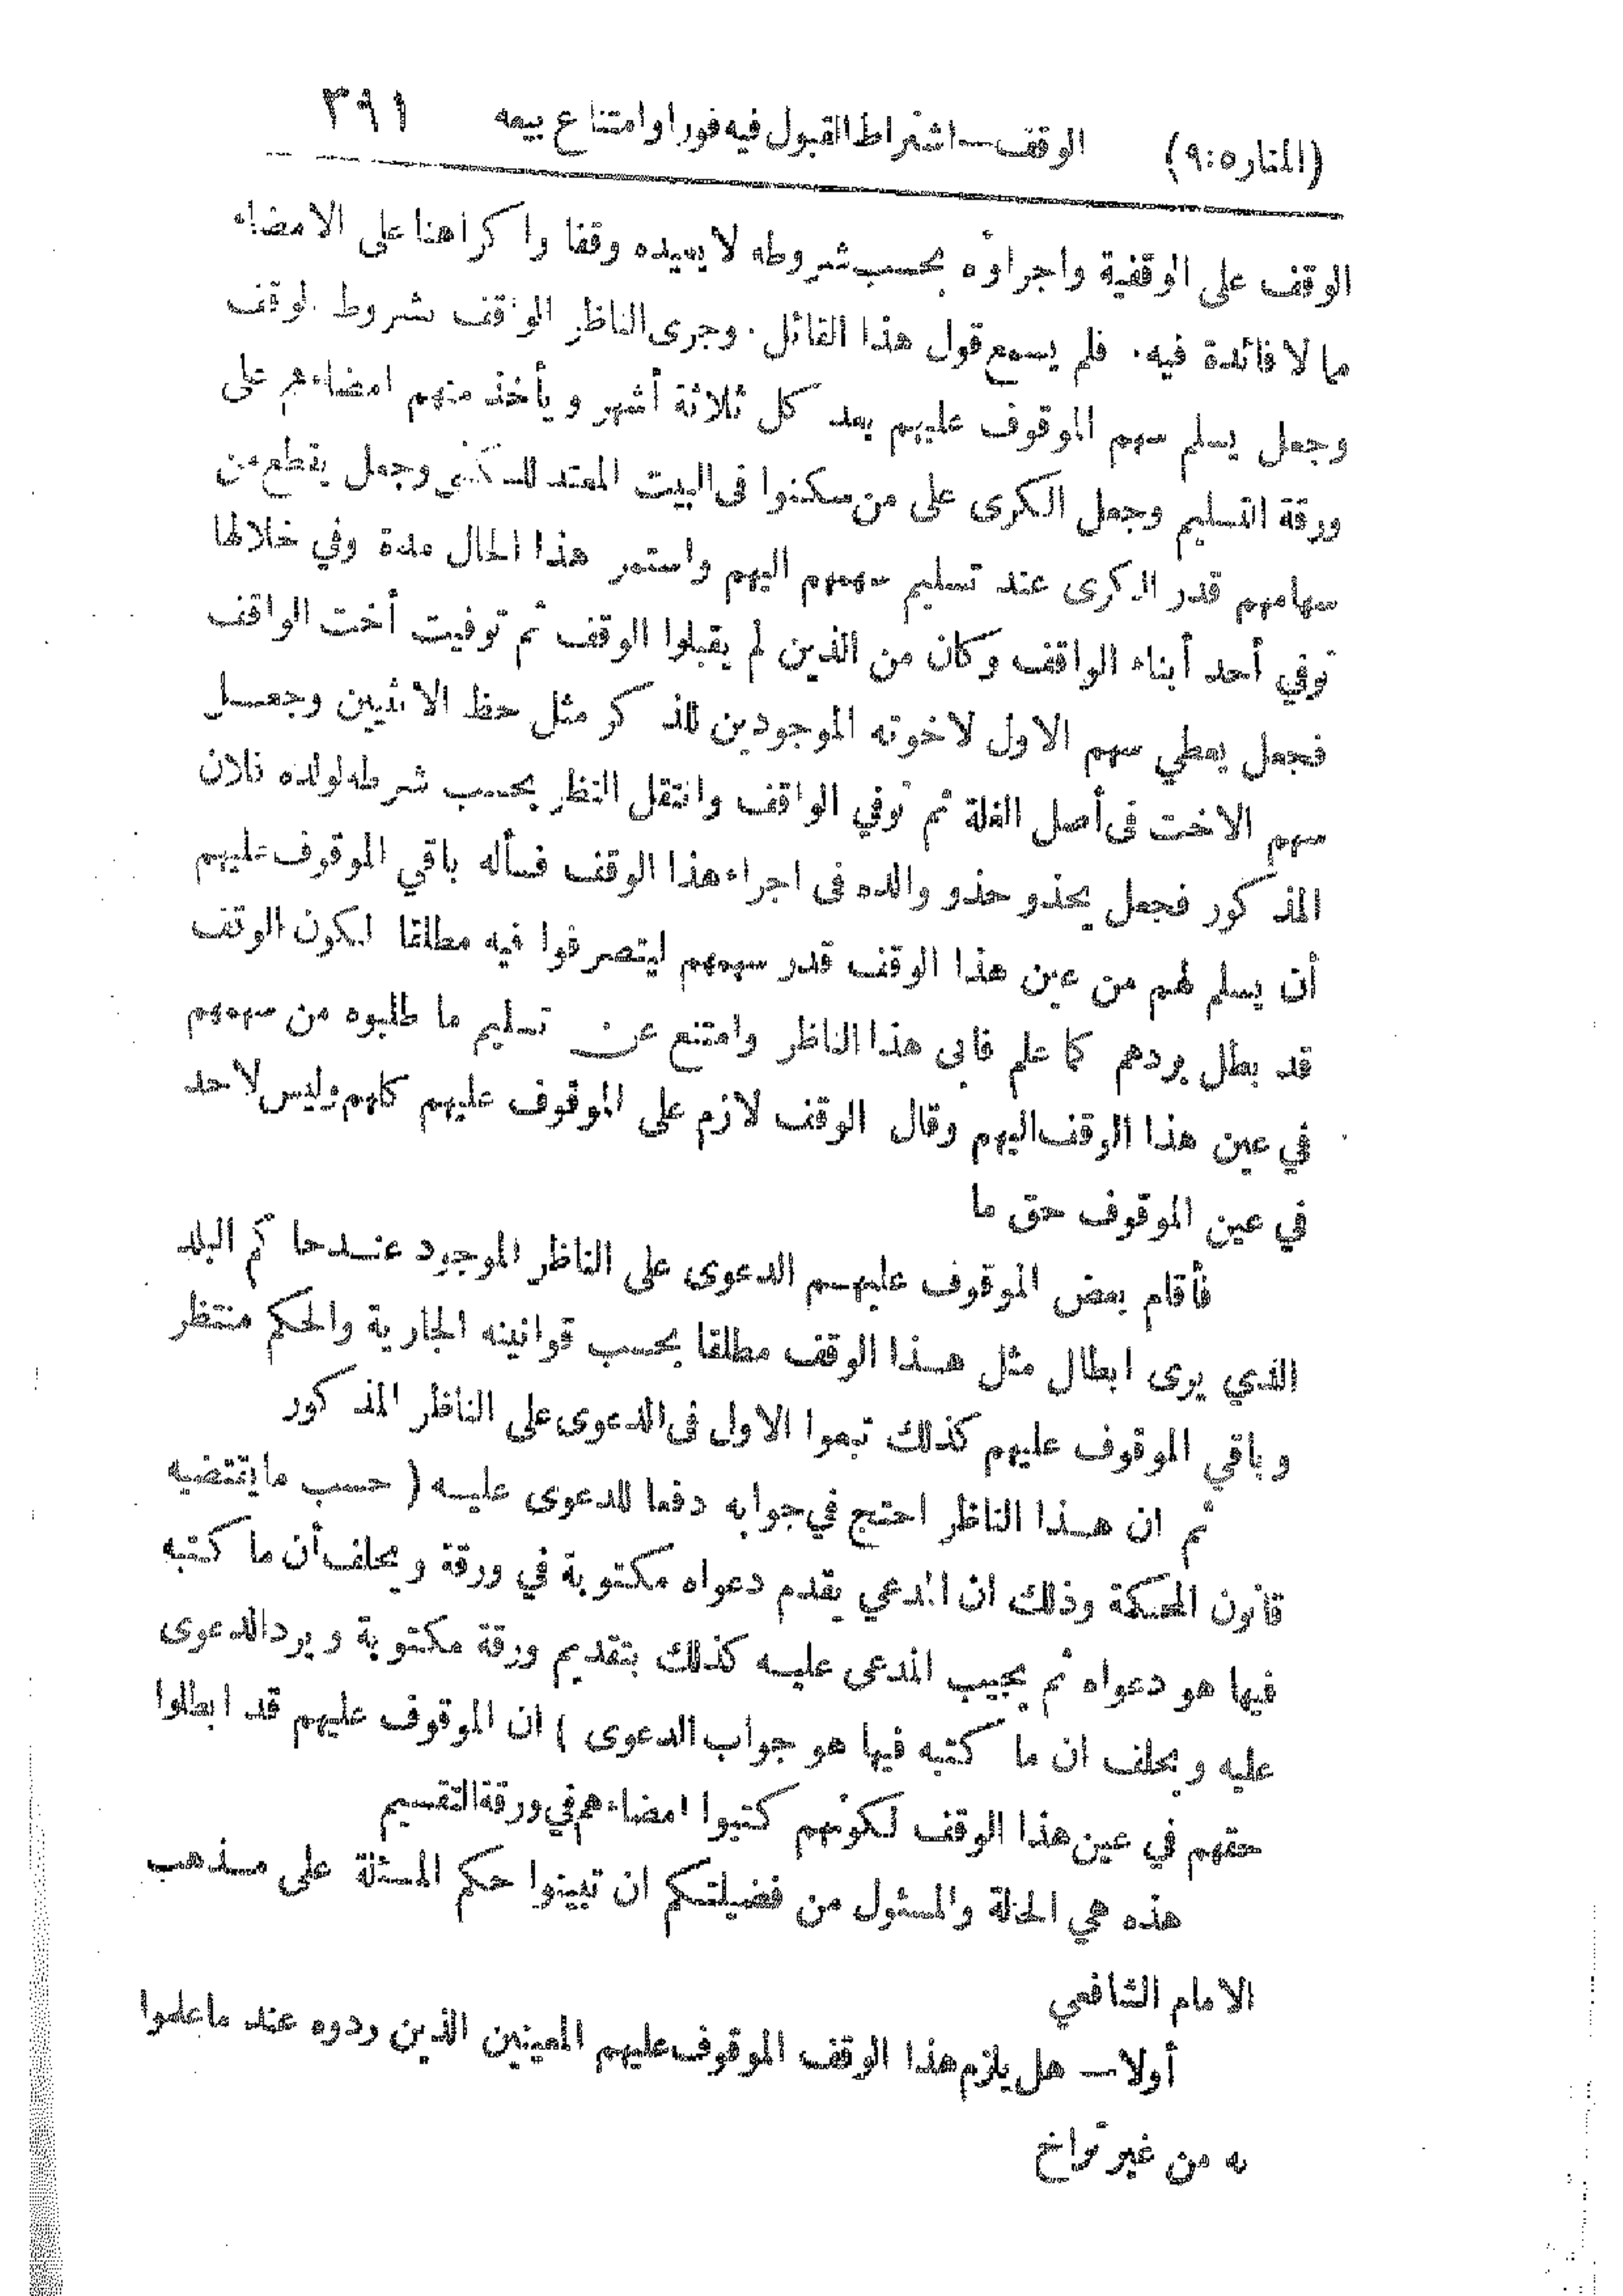 (المنار ٥ : ٩) الوقف — اشتراط القبول فيه فورا وامتناع بيعه ٣٩١
الوقف على الوقفية واجراؤه بحسب شروطه لا يعيده وقفا واكراهنا على الامضاء
مما لا فائدة فيه. فلم يسمع قول هذا القائل. وجرى الناظر الواقف بشروط الوقف
وجعل يسلم سهم الموقوف عليهم بعد كل ثلاثة أشهر ويأخذ منهم امضاءهم على
ورقة التسليم وجعل الكرى على من سكنوا فى البيت المعتد للسكنى وجعل يقطع من
سهامهم قدر الكرى عند تسليم سهمهم اليهم واستمر هذا الحال مدة وفي خلالها
توفي أحد أبناء الواقف وكان من الذين لم يقبلوا الوقف ثم توفيت أخت الواقف
فجعل يعطي سهم الاول لاخوته الموجودين للذكر مثل حظ الانثيين وجعل
سهم الاخت فى أصل الغلة ثم توفي الواقف وانتقل النظر بحسب شرطه لولده فلان
المذكور فجعل يحذو حذو والده فى اجراء هذا الوقف فسأله باقي الموقوف عليهم
أن يسلم لهم من عين هذا الوقف قدر سهمهم ليتصرفوا فيه مطلقا لكون الوقف
قد بطل بردهم كما علم فابى هذا الناظر وامتنع عن تسليم ما طلبوه من سهمهم
في عين هذا الوقف اليهم وقال الوقف لازم على الموقوف عليهم كلهم وليس لاحد
في عين الموقوف حق ما
فأقام بعض الموقوف عليهم الدعوى على الناظر الموجود عند حاكم البلد
الذي يرى ابطال مثل هذا الوقف مطلقا بحسب قوانينه الجارية والحكم منتظر
وباقي الموقوف عليهم كذلك تبعوا الاول فى الدعوى على الناظر المذكور
ثم ان هذا الناظر احتج في جوابه دفعا للدعوى عليه ( حسب ما يقتضيه
قانون المحكمة وذلك ان المدعي يقدم دعواه مكتوبة في ورقة ويحلف أن ما كتبه
فيها هو دعواه ثم يجيب المدعى عليه كذلك بتقديم ورقة مكتوبة ويرد الدعوى
عليه ويحلف ان ما كتبه فيها هو جواب الدعوى ) ان الموقوف عليهم قد ابطلوا
حقهم في عين هذا الوقف لكونهم كتبوا امضاءهم في ورقة التقسيم
هذه هي الحالة والمسئول من فضيلتكم ان تبينوا حكم المسئلة على مذهب
الامام الشافعي
أولا — هل يلزم هذا الوقف الموقوف عليهم المعينين الذين ردوه عند ما علموا
به من غير تراخ